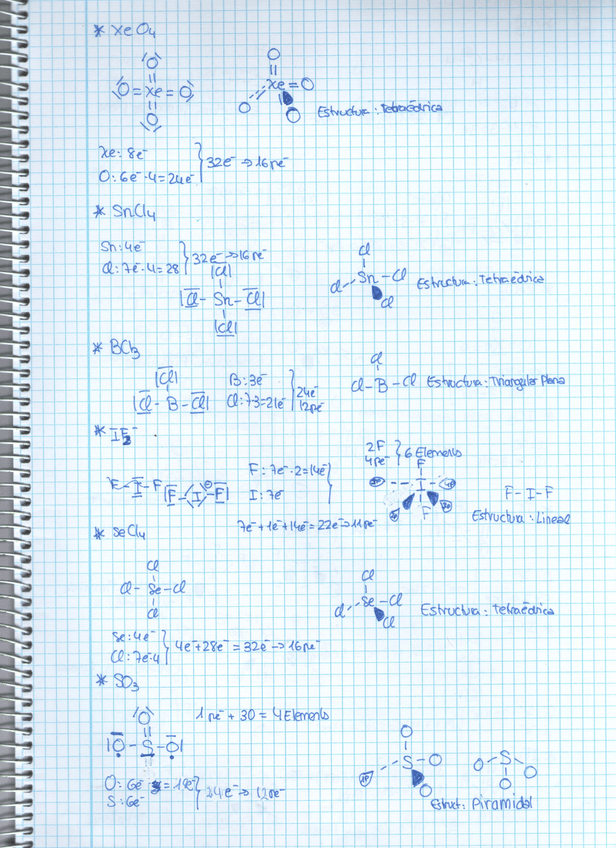 * XeO4
O
O = Xe = O
O
O
Xe = O
O
O
Estructura: Tetraédrica
Xe: 8e⁻
O: 6e⁻·4 = 24e⁻
32e⁻ → 16pe⁻
* SnCl4
Sn: 4e⁻
Cl: 7e⁻·4 = 28
32e⁻ → 16pe⁻
|Cl|
|Cl - Sn - Cl|
|Cl|
Cl
Cl Sn - Cl
Cl
Estructura: Tetraédrica
* BCl3
|Cl|
|Cl - B - Cl|
B: 3e⁻
Cl: 7·3 = 21e⁻
24e⁻
12pe⁻
Cl
Cl - B - Cl
Estructura: Triangular plana
* IF2⁻
F - I - F
F - I - F
F: 7e⁻·2 = 14e⁻
I: 7e⁻
7e⁻ + 1e⁻ + 14e⁻ = 22e⁻ → 11pe⁻
2F
4pe⁻
6 Elementos
F
I
F
F - I - F
Estructura: Lineal
* SeCl4
Cl
Cl - Se - Cl
Cl
Cl
Cl Se - Cl
Cl
Estructura: Tetraédrica
Se: 4e⁻
Cl: 7e⁻·4
4e⁻ + 28e⁻ = 32e⁻ → 16pe⁻
* SO3
1pe⁻ + 3O = 4 Elements
O
|O - S - O|
O: 6e⁻ = 18e⁻
S: 6e⁻
24e⁻ → 12pe⁻
O
S - O
O
S
O O
O
Estruct: Piramidal